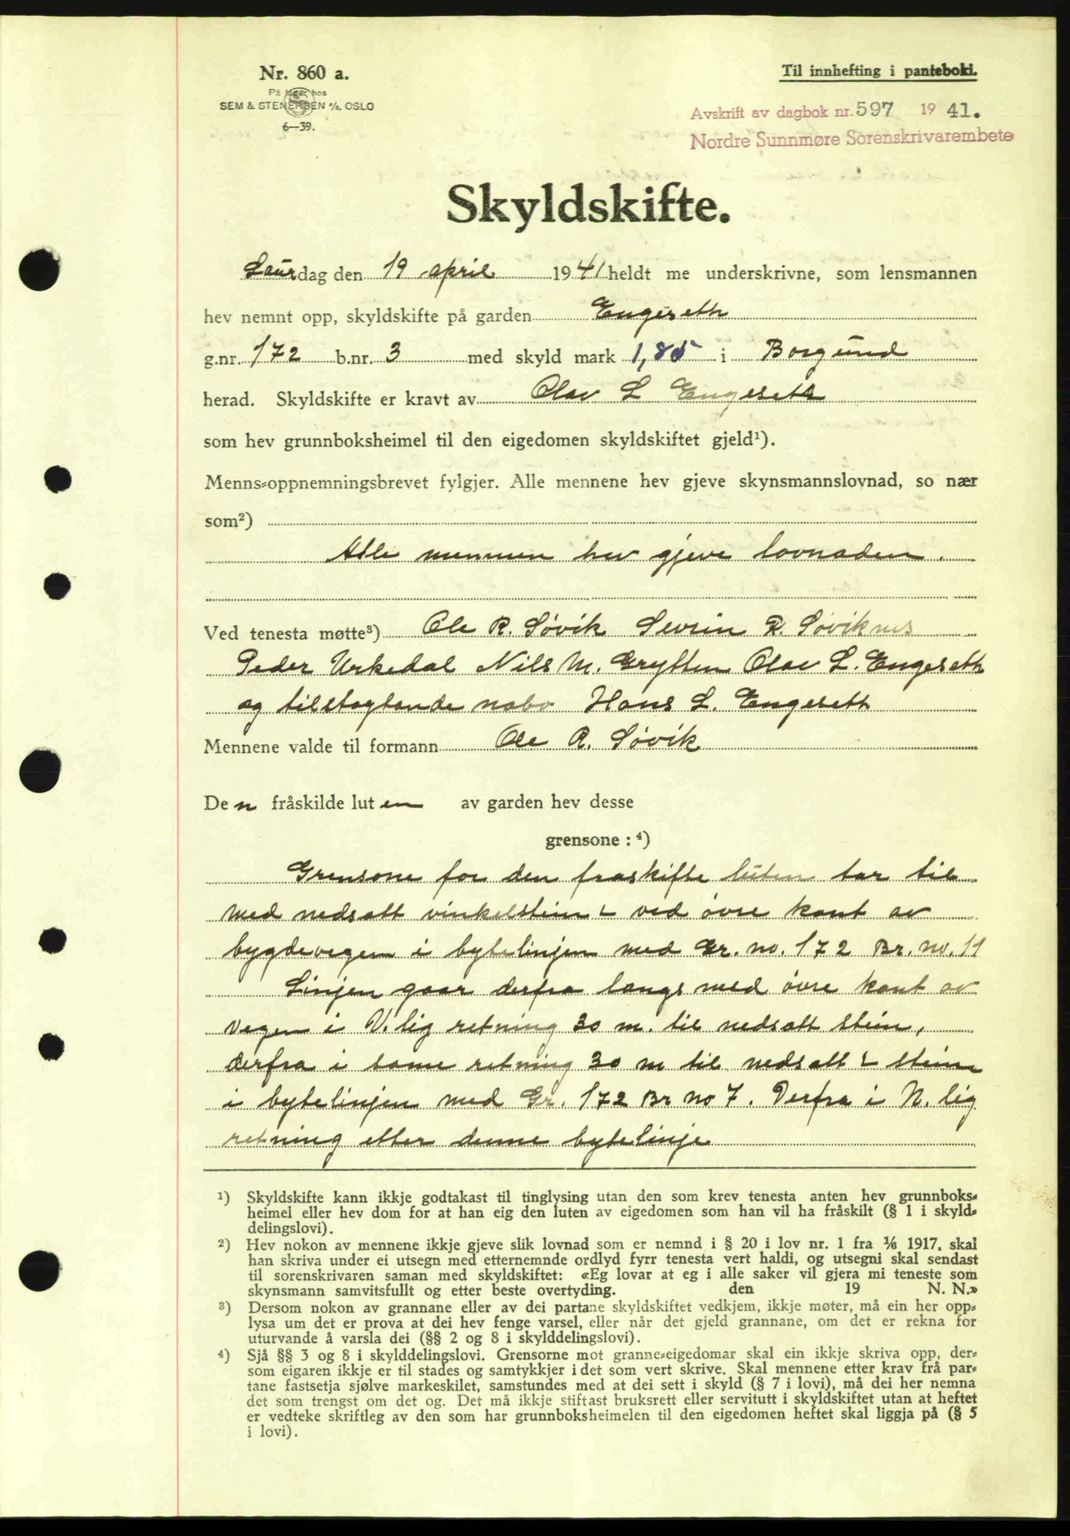 Nr. 860 a.
På lager hos
SEM & STENERSEN A/S, OSLO
6—39.
Til innhefting i panteboki.
Avskrift av dagbok nr. 597 1941.
Nordre Sunnmøre Sorenskrivarembete
Skyldskifte.
Laurdag den 19 april 1941 heldt me underskrivne, som lensmannen
hev nemnt opp, skyldskifte på garden Engeseth
g.nr. 172 b.nr. 3 med skyld mark 1,85 i Borgund
herad. Skyldskifte er kravt av Olav L Engeseth
som hev grunnboksheimel til den eigedomen skyldskiftet gjeld¹).
Menns-oppnemningsbrevet fylgjer. Alle mennene hev gjeve skynsmannslovnad, so nær
som²)
Alle mennen hev gjeve lovnaden.
Ved tenesta møtte³) Ole R. Søvik Sevrin R. Søviknes
Peder Urkedal Nils M. Grytten Olav L. Engeseth
og tilstøytande nabo Hans L. Engeseth
Mennene valde til formann Ole R. Søvik
Den fråskilde luten av garden hev desse
grensone : ⁴)
Grensone for den fraskifte luten tar til
med nedsatt vinkelstein ∟ ved øvre kant av
bygdevegen i bytelinjen med Gr. no. 172 Br. no. 11
Linjen gaar derfra langs med øvre kant av
vegen i V. lig retning 30 m. til nedsatt stein,
derfra i same retning 30 m til nedsatt ∟ stein
i bytelinjen med Gr. 172 Br no 7. Derfra i N. lig
retning etter denne bytelinje
¹) Skyldskifte kann ikkje godtakast til tinglysing utan den som krev tenesta anten hev grunnboks-
heimel eller hev dom for at han eig den luten av eigedomen som han vil ha fråskilt (§ 1 i skyld-
delingslovi).
²) Hev nokon av mennene ikkje gjeve slik lovnad som er nemnd i § 20 i lov nr. 1 fra 1/6 1917, skal
han skriva under ei utsegn med etternemnde ordlyd fyrr tenesta vert haldi, og utsegni skal sendast
til sorenskrivaren saman med skyldskiftet: «Eg lovar at eg i alle saker vil gjera mi teneste som
skynsmann samvitsfullt og etter beste overtyding. den 19 N. N.»
³) Dersom nokon av grannane eller av dei partane skyldskiftet vedkjem, ikkje møter, må ein her opp-
lysa um det er prova at dei hev fenge varsel, eller når det gjeld grannane, om det er rekna for
uturvande å varsla dei (§§ 2 og 8 i skylddelingslovi).
⁴) Sjå §§ 3 og 8 i skylddelingslovi. Grensorne mot granne-eigedomar skal ein ikkje skriva opp, der-
som eigaren ikkje er til stades og samtykkjer i det som vert skrive. Skal mennene etter krav frå par-
tane fastsetja sjølve markeskilet, samstundes med at dei sett i skyld (§ 7 i lovi), må dei her nemna
det som trengst om det og. Det må ikkje stiftast bruksrett eller servitutt i skyldskiftet utan at heftet
er vedteke skriftleg av den som har grunnboksheimelen til den eigedomen heftet skal liggja på (§ 5
i lovi).